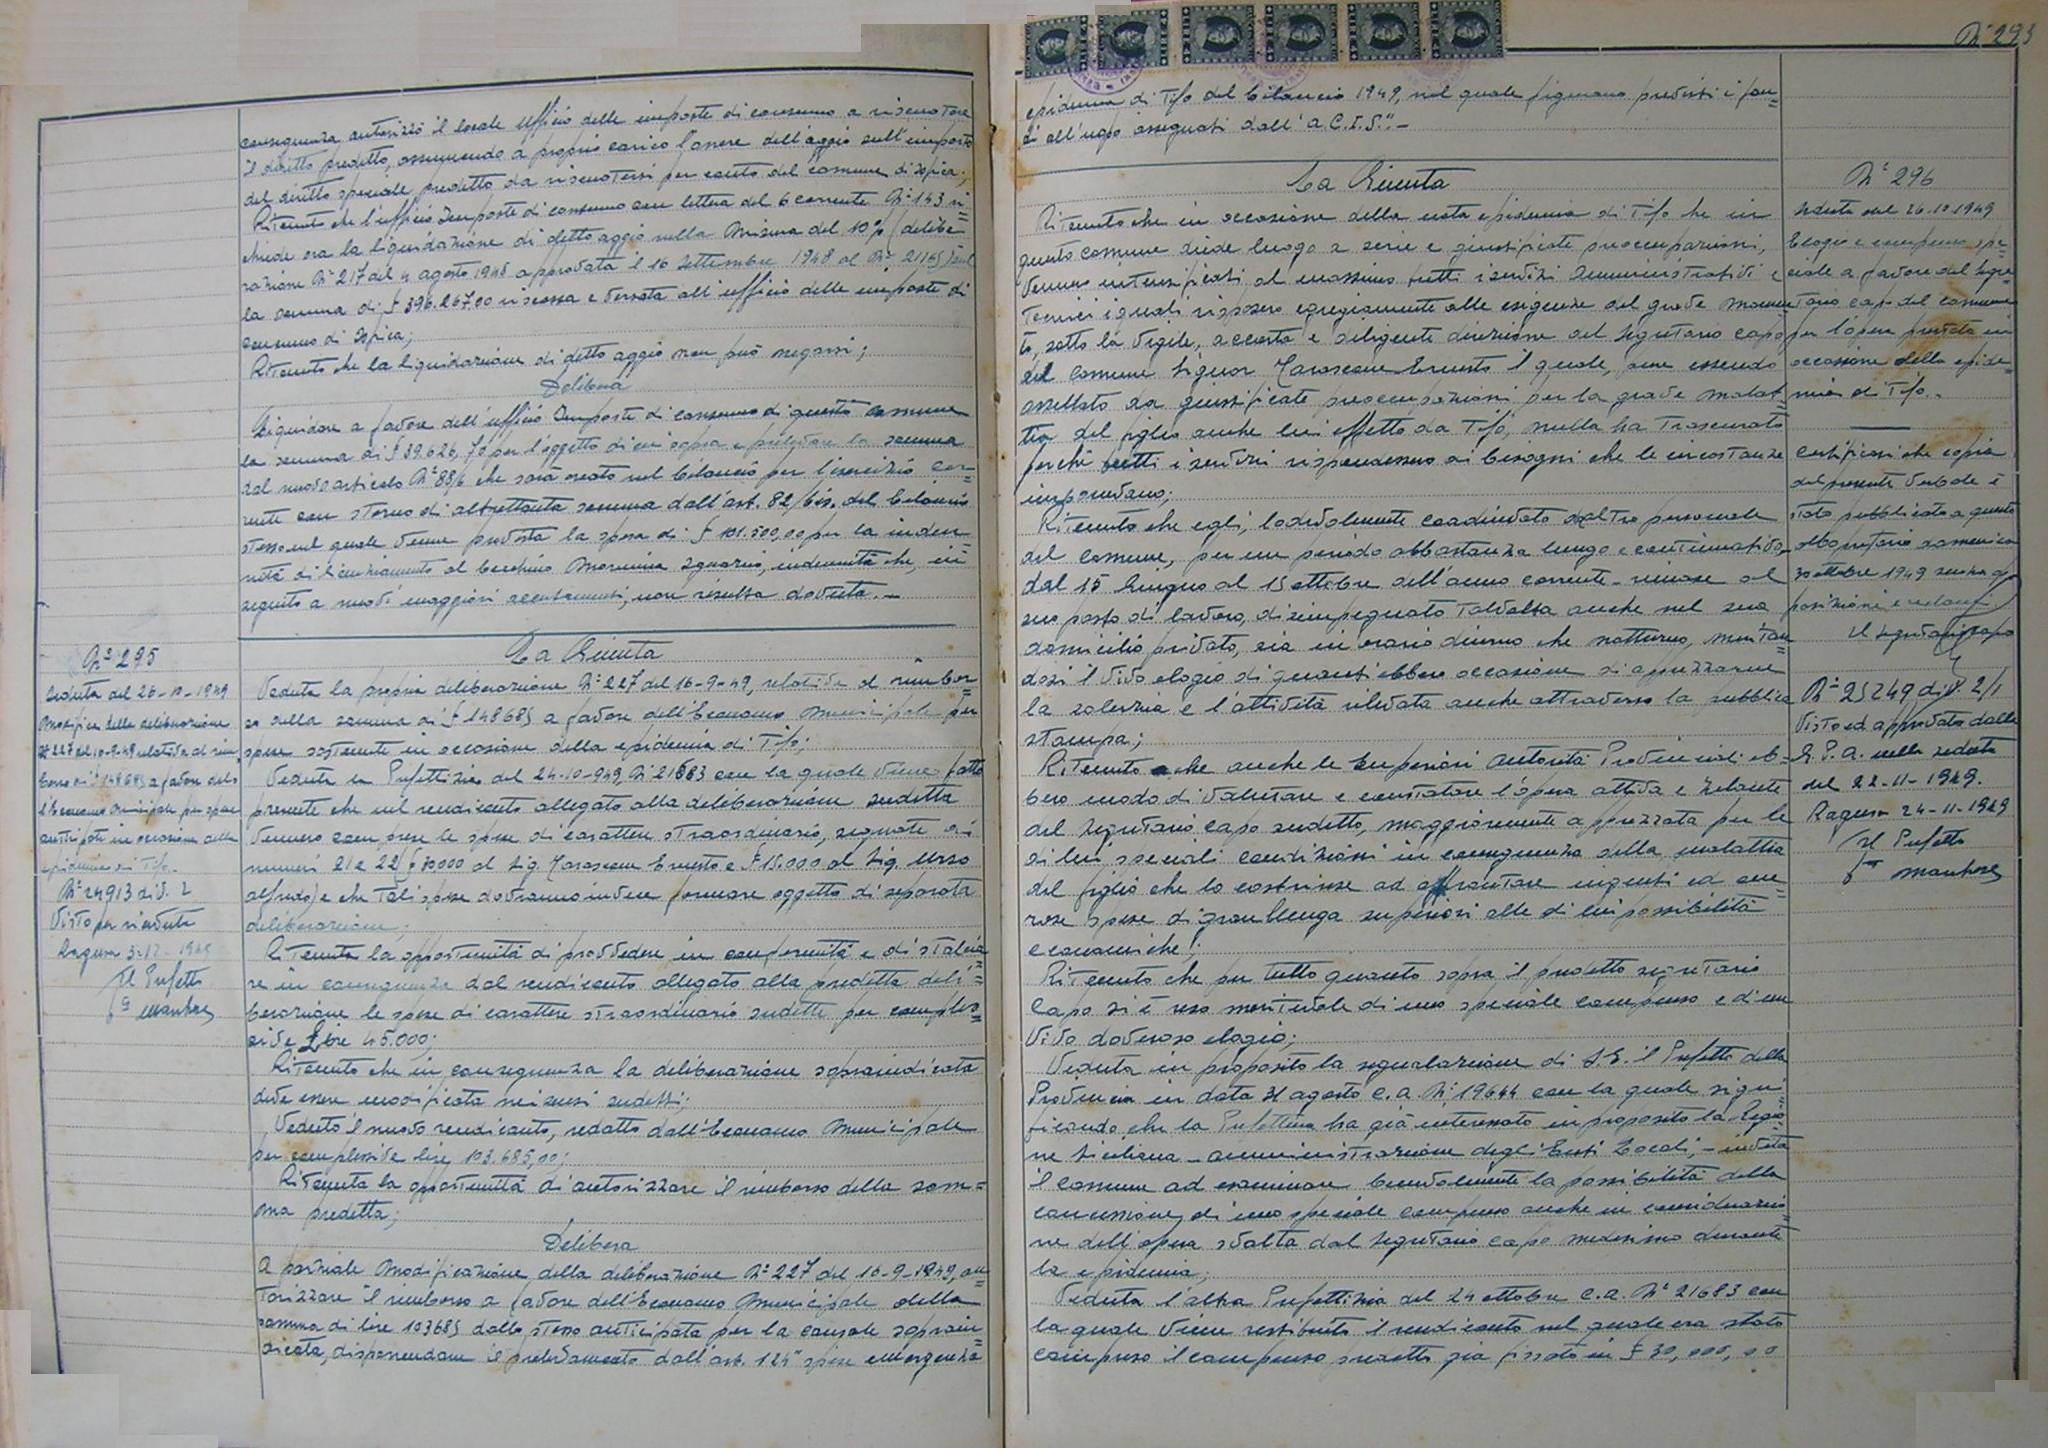 conseguenza autorizzò il locale Ufficio delle imposte di consumo a riscuotere
il diritto predetto, assumendo a proprio carico l'onere dell'aggio sull'importo
del diritto speciale predetto da riscuotersi per conto del comune di Ispica;
Ritenuto che l'ufficio Imposte di consumo con lettera del 6 corrente N° 143 ri=
chiede ora la liquidazione di detto aggio nella misura del 10% (delibe
razione N° 217 del 4 agosto 1948 approvata il 16 Settembre 1948 al N° 21165) sul
la somma di £ 396.267,00 riscossa e versata all'ufficio delle imposte di
consumo di Ispica;
Ritenuto che la liquidazione di detto aggio non può negarsi;
Delibera
Liquidare a favore dell'ufficio Imposte di consumo di questo comune
la somma di £ 39.626,70 per l'oggetto di cui sopra e prelevare la somma
dal nuovo articolo N° 83/6 che sarà creato nel bilancio per l'esercizio cor=
rente con storno di altrettanta somma dall'art. 82/bis. del bilancio
stesso nel quale venne prevista la spesa di £ 101.500,00 per la inden
nità di licenziamento al becchino Moncivia Ignazio, indennità che, in
seguito a nuovi maggiori accertamenti, non risulta dovuta. —
N° 295
Seduta del 26-10-1949
Modifica della deliberazione
N° 227 del 16-9-49 relativa al rim
borso di £ 148685 a favore del=
l'Economo Municipale per spese
anticipate in occasione della
epidemia di Tifo.
N° 24913 div. 2
Visto per ricevuta
Ragusa 3-12-1949
Il Prefetto
La Giunta
Veduta la propria deliberazione N° 227 del 16-9-49, relativa al rimbor=
so della somma di £ 148685 a favore dell'Economo Municipale per
spese sostenute in occasione della epidemia di Tifo;
Veduta la Prefettizia del 24-10-949 N° 21683 con la quale viene fatto
presente che nel rendiconto allegato alla deliberazione suddetta
vennero comprese le spese di carattere straordinario, segnate ai
numeri 21 e 22 (£ 30000 al Sig. Carascone Ernesto e £ 15.000 al Sig. Urso
Alfredo) e che tali spese dovranno invece formare oggetto di separata
deliberazione;
Ritenuta la opportunità di provvedere in conformità e di stalcia
re in conseguenza dal rendiconto allegato alla predetta deli=
berazione le spese di carattere straordinario sudette per comples=
sive Lire 45.000;
Ritenuto che in conseguenza la deliberazione sopraindicata
deve essere modificata nei sensi sudetti;
Veduto il nuovo rendiconto, redatto dall'Economo Municipale
per complessive lire 103.685,00;
Ritenuta la opportunità di autorizzare il rimborso della som=
ma predetta;
Delibera
A parziale modificazione della deliberazione N° 227 del 16-9-1949, au=
torizzare il rimborso a favore dell'Economo Municipale della
somma di lire 103685 dallo stesso anticipata per la causale soprain=
dicata, disponendone il prelevamento dall'art. 124 "spese emergenza
N° 295
epidemia di Tifo del bilancio 1949, nel quale figurano previsti i fon=
di all'uopo assegnati dall'A.C.I.S." —
La Giunta
Ritenuto che in occasione della nota epidemia di Tifo che in
questo comune diede luogo a serie e giustificate preoccupazioni,
vennero intensificati al massimo tutti i servizi Amministrativi e
tecnici i quali risposero egregiamente alle esigenze del grave momen
to, sotto la vigile, accorta e diligente direzione del Segretario capo
del comune Signor Carascone Ernesto il quale, pure essendo
assillato da giustificate preoccupazioni per la grave malat=
tia del figlio anche lui affetto da Tifo, nulla ha trascurato
perchè tutti i servizi rispondessero ai bisogni che le circostanze
imponevano;
Ritenuto che egli, lodevolmente coadiuvato da altro personale
del comune, per un periodo abbastanza lungo e continuativo
dal 15 Giugno al 15 ottobre dell'anno corrente - rimase al
suo posto di lavoro, disimpegnato talvolta anche nel suo
domicilio privato, sia in orario diurno che notturno, meritan=
dosi il vivo elogio di quanti ebbero occasione di apprezzarne
la solerzia e l'attività rilevata anche attraverso la pubblica
stampa;
Ritenuto che anche le Superiori Autorità Provinciali eb=
bero modo di valutare e constatare l'opera attiva e zelante
del Segretario capo sudetto, maggiormente apprezzata per le
di lui speciali condizioni in conseguenza della malattia
del figlio che lo costrinse ad affrontare ingenti ed one=
rose spese di gran lunga superiori alle di lui possibilità
economiche;
Ritenuto che per tutto quanto sopra il predetto segretario
capo si è reso meritevole di uno speciale compenso e di un
vivo doveroso elogio;
Veduta in proposito la segnalazione di S.E. il Prefetto della
Provincia in data 31 agosto c.a. N° 19644 con la quale signi=
ficando che la Prefettura ha già interessato in proposito la Regio
ne Siciliana - amministrazione degli Enti Locali, - invita
il comune ad esaminare benevolmente la possibilità della
concessione di uno speciale compenso anche in considerazio=
ne dell'opera svolta dal Segretario capo medesimo durante
la epidemia;
Veduta l'altra Prefettizia del 24 ottobre c.a. N° 21683 con
la quale viene restituito il rendiconto nel quale era stato
compreso il compenso predetto già fissato in £ 30,000,00
N° 296
Seduta del 26-10-1949
Elogio e compenso spe=
ciale a favore del Segre=
tario capo del comune
per l'opera prestata in
occasione della epide=
mia di Tifo. -
Certificasi che copia
del presente verbale è
stata pubblicata a questo
Albo pretorio domenica
30 ottobre 1949 senza op
posizioni e reclami
Il Segretario capo
N° 25249 div. 2/1
Visto ed approvato dalla
G.P.A. nella seduta
del 22-11-1949.
Ragusa 24-11-1949
Il Prefetto